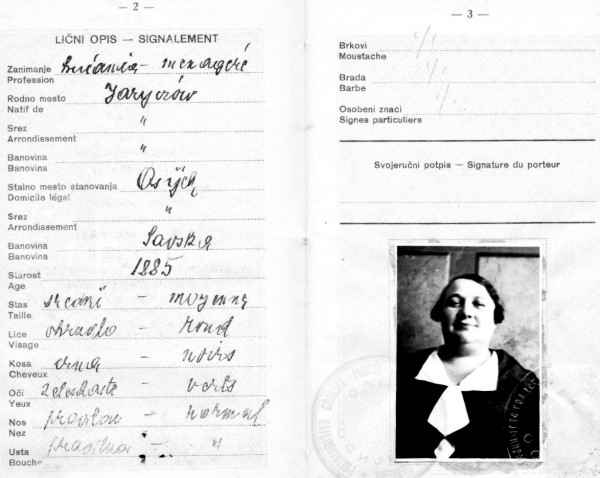 — 2 —
LIČNI OPIS — SIGNALEMENT
Zanimanje kućanica - menageré
Profession
Rodno mesto Jaryczów
Natif de
Srez "
Arrondissement
Banovina "
Banovina
Stalno mesto stanovanja Osijek
Domicile légal
Srez "
Arrondissement
Banovina Savska
Banovina
Starost 1885
Age
Stas srednji - moyenne
Taille
Lice okruglo - rond
Visage
Kosa crna - noirs
Cheveux
Oči zelenkaste - verts
Yeux
Nos pravilan - normal
Nez
Usta pravilna - "
Bouche
— 3 —
Brkovi /
Moustache
Brada /
Barbe
Osobeni znaci /
Signes particuliers
Svojeručni potpis — Signature du porteur